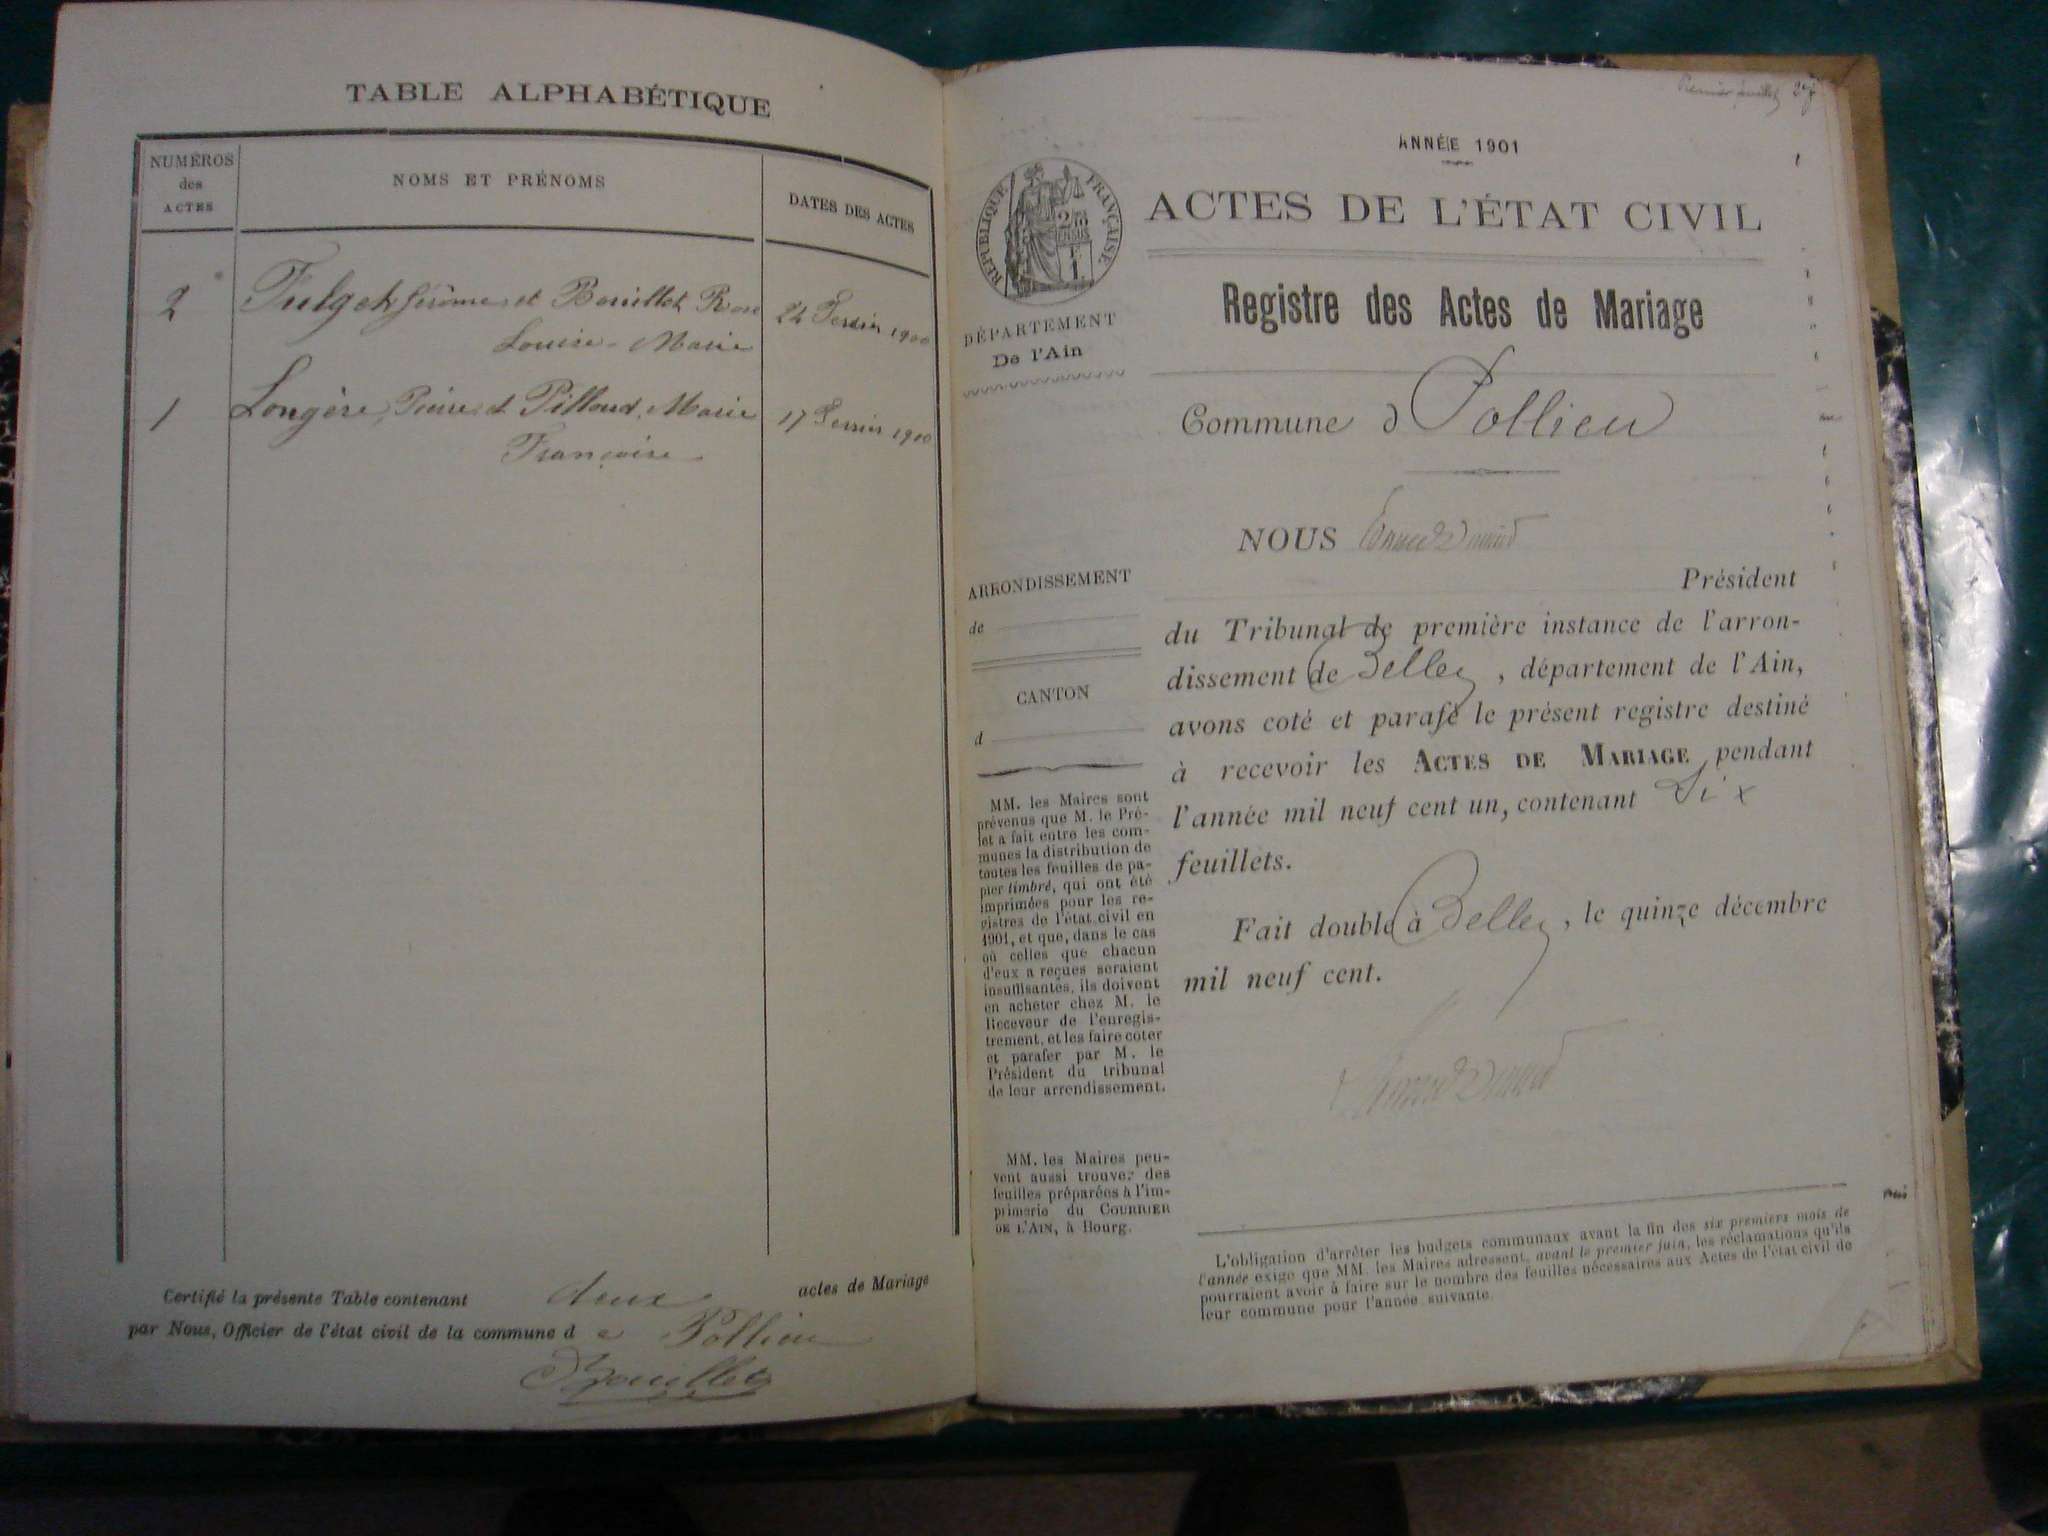 TABLE ALPHABÉTIQUE
NUMÉROS
des
ACTES
NOMS ET PRÉNOMS
DATES DES ACTES
2 Fulget Jérôme et Bouillet Rose 1900
Louise-Marie
1 Longère, Pierre et Pilloud, Marie 17 1900
Françoise
Certifié la présente Table contenant deux actes de Mariage
par Nous, Officier de l'état civil de la commune d e Pollieu
Bouillet
Premier feuillet
ANNÉE 1901
RÉPUBLIQUE FRANÇAISE
ACTES DE L'ÉTAT CIVIL
Registre des Actes de Mariage
DÉPARTEMENT
De l'Ain
Commune d Pollieu
NOUS
ARRONDISSEMENT
de
CANTON
d
MM. les Maires sont
prévenus que M. le Pré-
fet a fait entre les com-
munes la distribution de
toutes les feuilles de pa-
pier timbré, qui ont été
imprimées pour les re-
gistres de l'état civil en
1901, et que, dans le cas
où celles que chacun
d'eux a reçues seraient
insuffisantes, ils doivent
en acheter chez M. le
Receveur de l'enregis-
trement, et les faire coter
et parafer par M. le
Président du tribunal
de leur arrondissement.
MM. les Maires peu-
vent aussi trouver des
feuilles préparées à l'im-
primerie du COURRIER
DE L'AIN, à Bourg.
Président
du Tribunal de première instance de l'arron-
dissement de Belley, département de l'Ain,
avons coté et parafé le présent registre destiné
à recevoir les ACTES DE MARIAGE pendant
l'année mil neuf cent un, contenant Six
feuillets.
Fait double à Belley, le quinze décembre
mil neuf cent.
L'obligation d'arrêter les budgets communaux avant la fin des six premiers mois de
l'année exige que MM. les Maires adressent, avant le premier juin, les réclamations qu'ils
pourraient avoir à faire sur le nombre des feuilles nécessaires aux Actes de l'état civil de
leur commune pour l'année suivante.